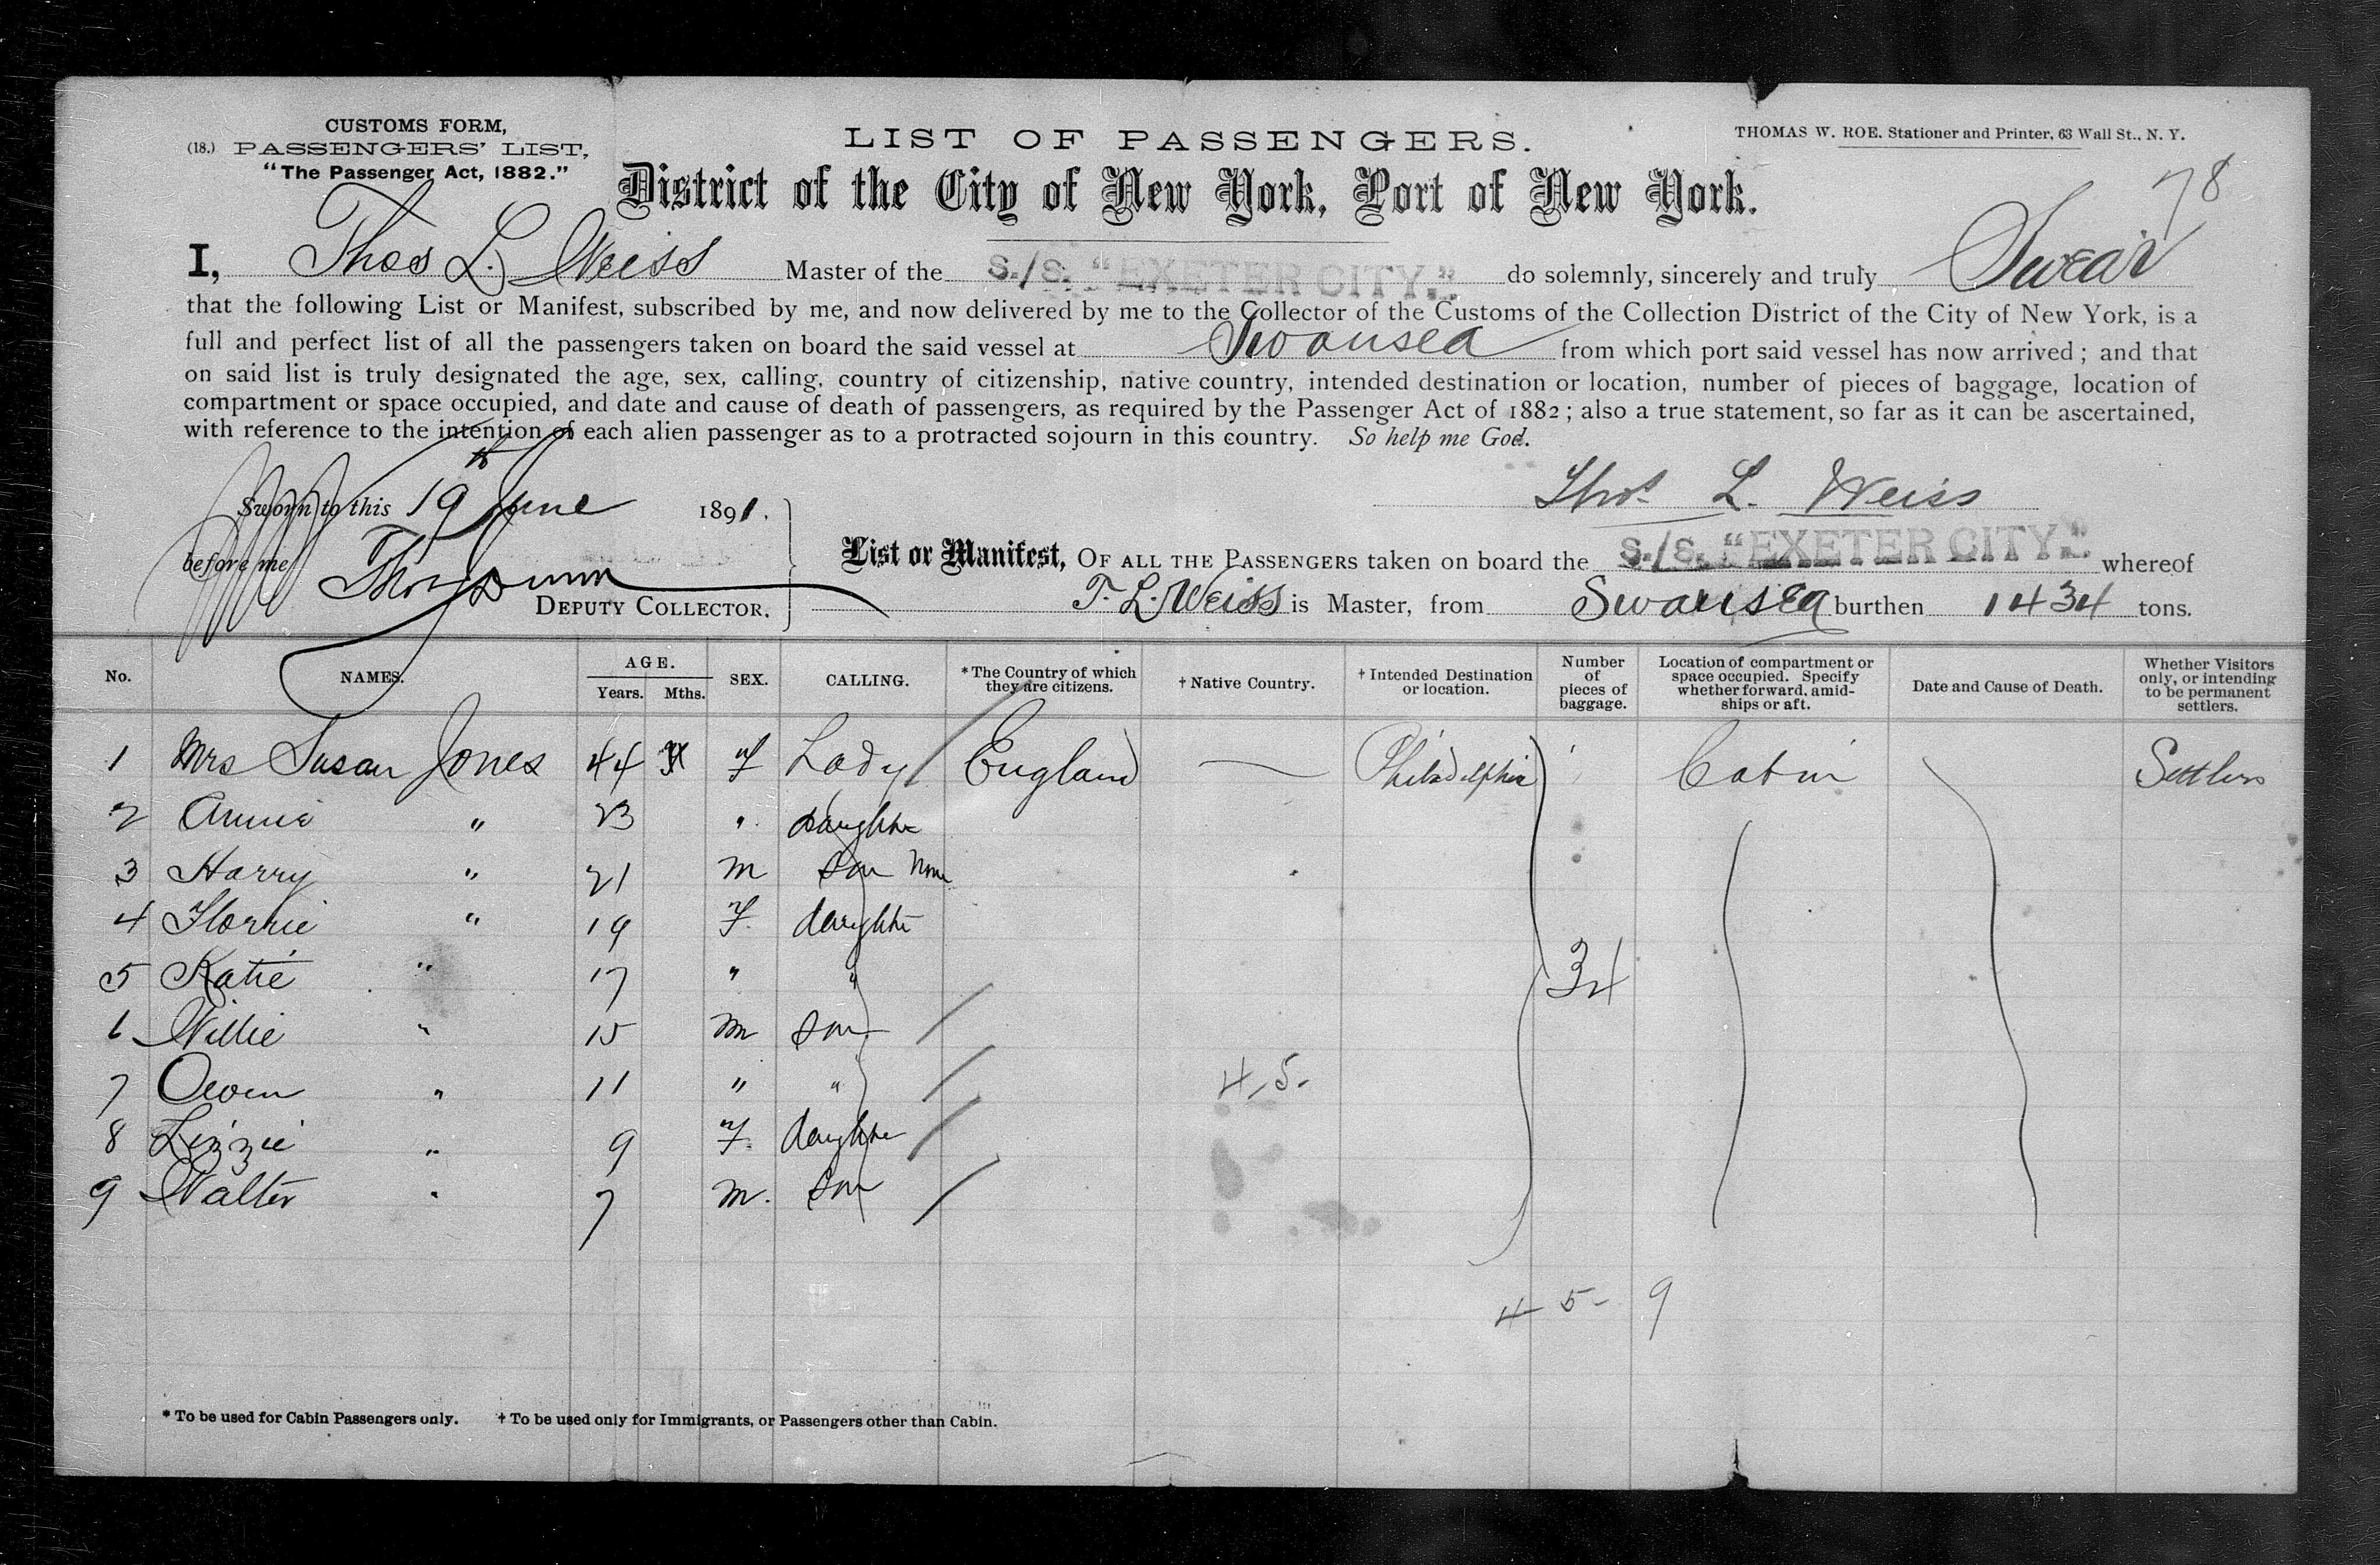 CUSTOMS FORM,
(18.) PASSENGERS' LIST,
"The Passenger Act, 1882."
LIST OF PASSENGERS.
THOMAS W. ROE. Stationer and Printer, 63 Wall St., N. Y.
District of the City of New York, Port of New York.
78
I, Thos L. Weiss Master of the S./S. "EXETER CITY." do solemnly, sincerely and truly Swear
that the following List or Manifest, subscribed by me, and now delivered by me to the Collector of the Customs of the Collection District of the City of New York, is a
full and perfect list of all the passengers taken on board the said vessel at Swansea from which port said vessel has now arrived; and that
on said list is truly designated the age, sex, calling, country of citizenship, native country, intended destination or location, number of pieces of baggage, location of
compartment or space occupied, and date and cause of death of passengers, as required by the Passenger Act of 1882; also a true statement, so far as it can be ascertained,
with reference to the intention of each alien passenger as to a protracted sojourn in this country. So help me God.
Sworn to this 19th June 1891.
Thos. L. Weiss
before me
DEPUTY COLLECTOR.
List or Manifest, OF ALL THE PASSENGERS taken on board the S./S. "EXETER CITY." whereof
T. L. Weiss is Master, from Swansea burthen 1434 tons.
No. NAMES. AGE. Years. Mths. SEX. CALLING. *The Country of which they are citizens. † Native Country. † Intended Destination or location. Number of pieces of baggage. Location of compartment or space occupied. Specify whether forward, amidships or aft. Date and Cause of Death. Whether Visitors only, or intending to be permanent settlers.
1 Mrs Susan Jones 44 F Lady England — Philadelphia Cabin Settlers
2 Annie " 23 " Daughter
3 Harry " 21 M Son None
4 Florrie " 19 F. daughter
5 Katie " 17 " " 34
6 Willie " 15 M Son
7 Owen " 11 " " 4-5-
8 Lizzie " 9 F. daughter
9 Walter " 7 M. Son
4 5- 9
* To be used for Cabin Passengers only. † To be used only for Immigrants, or Passengers other than Cabin.